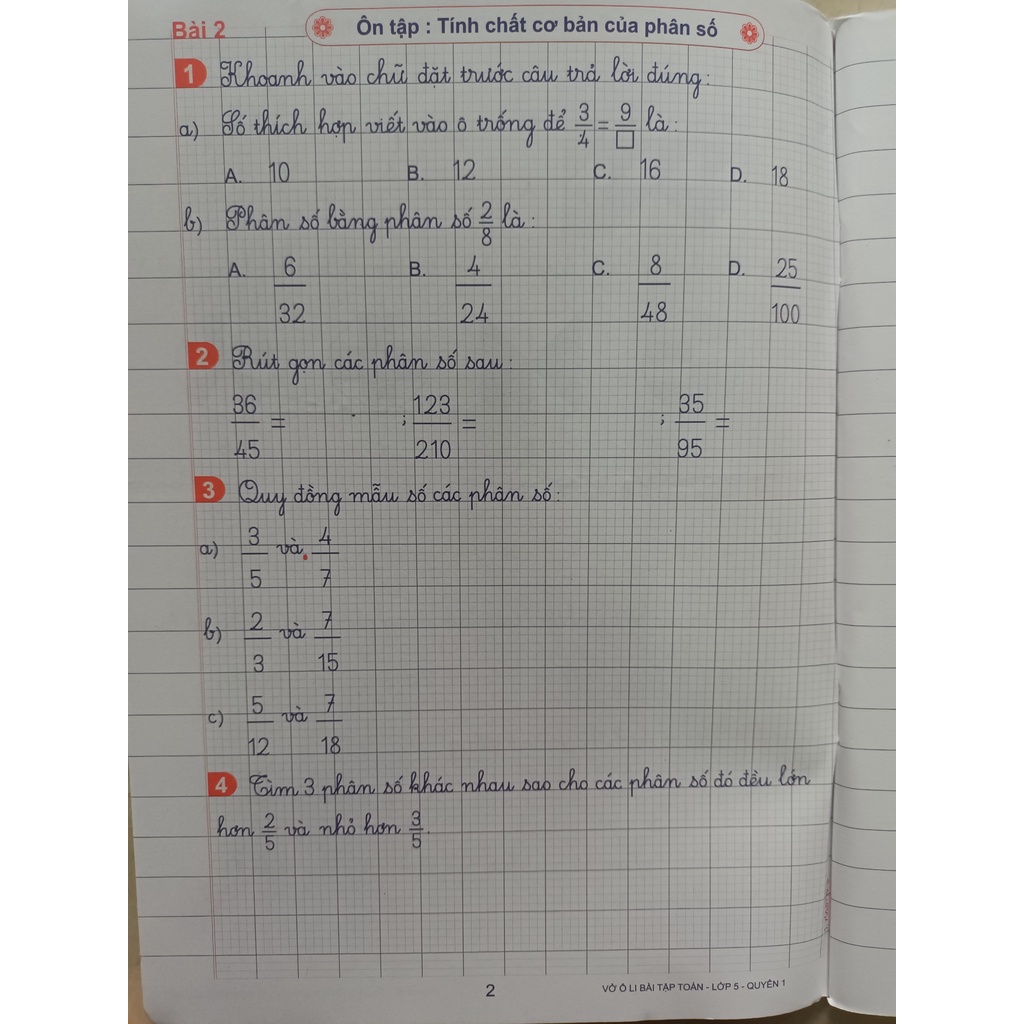 Bài 2
Ôn tập : Tính chất cơ bản của phân số
1 Khoanh vào chữ đặt trước câu trả lời đúng:
a) Số thích hợp viết vào ô trống để 3/4 = 9/□ là:
A. 10 B. 12 C. 16 D. 18
b) Phân số bằng phân số 2/8 là:
A. 6/32 B. 4/24 C. 8/48 D. 25/100
2 Rút gọn các phân số sau:
36/45 = ; 123/210 = ; 35/95 =
3 Quy đồng mẫu số các phân số:
a) 3/5 và 4/7
b) 2/3 và 7/15
c) 5/12 và 7/18
4 Tìm 3 phân số khác nhau sao cho các phân số đó đều lớn
hơn 2/5 và nhỏ hơn 3/5.
2
VỞ Ô LI BÀI TẬP TOÁN - LỚP 5 - QUYỂN 1